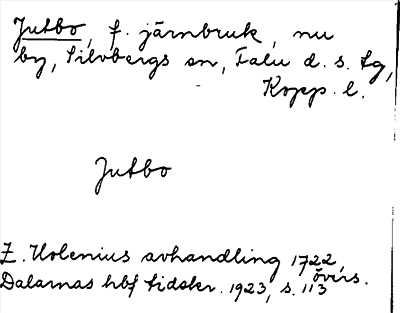 Jutbo, f. järnbruk, nu
by, Silvbergs sn, Falu d. s. tg,
Kopp. l.
Jutbo
Z. Holenius avhandling 1722,
Dalarnas hbf tidskr. 1923, s. 113 övers.